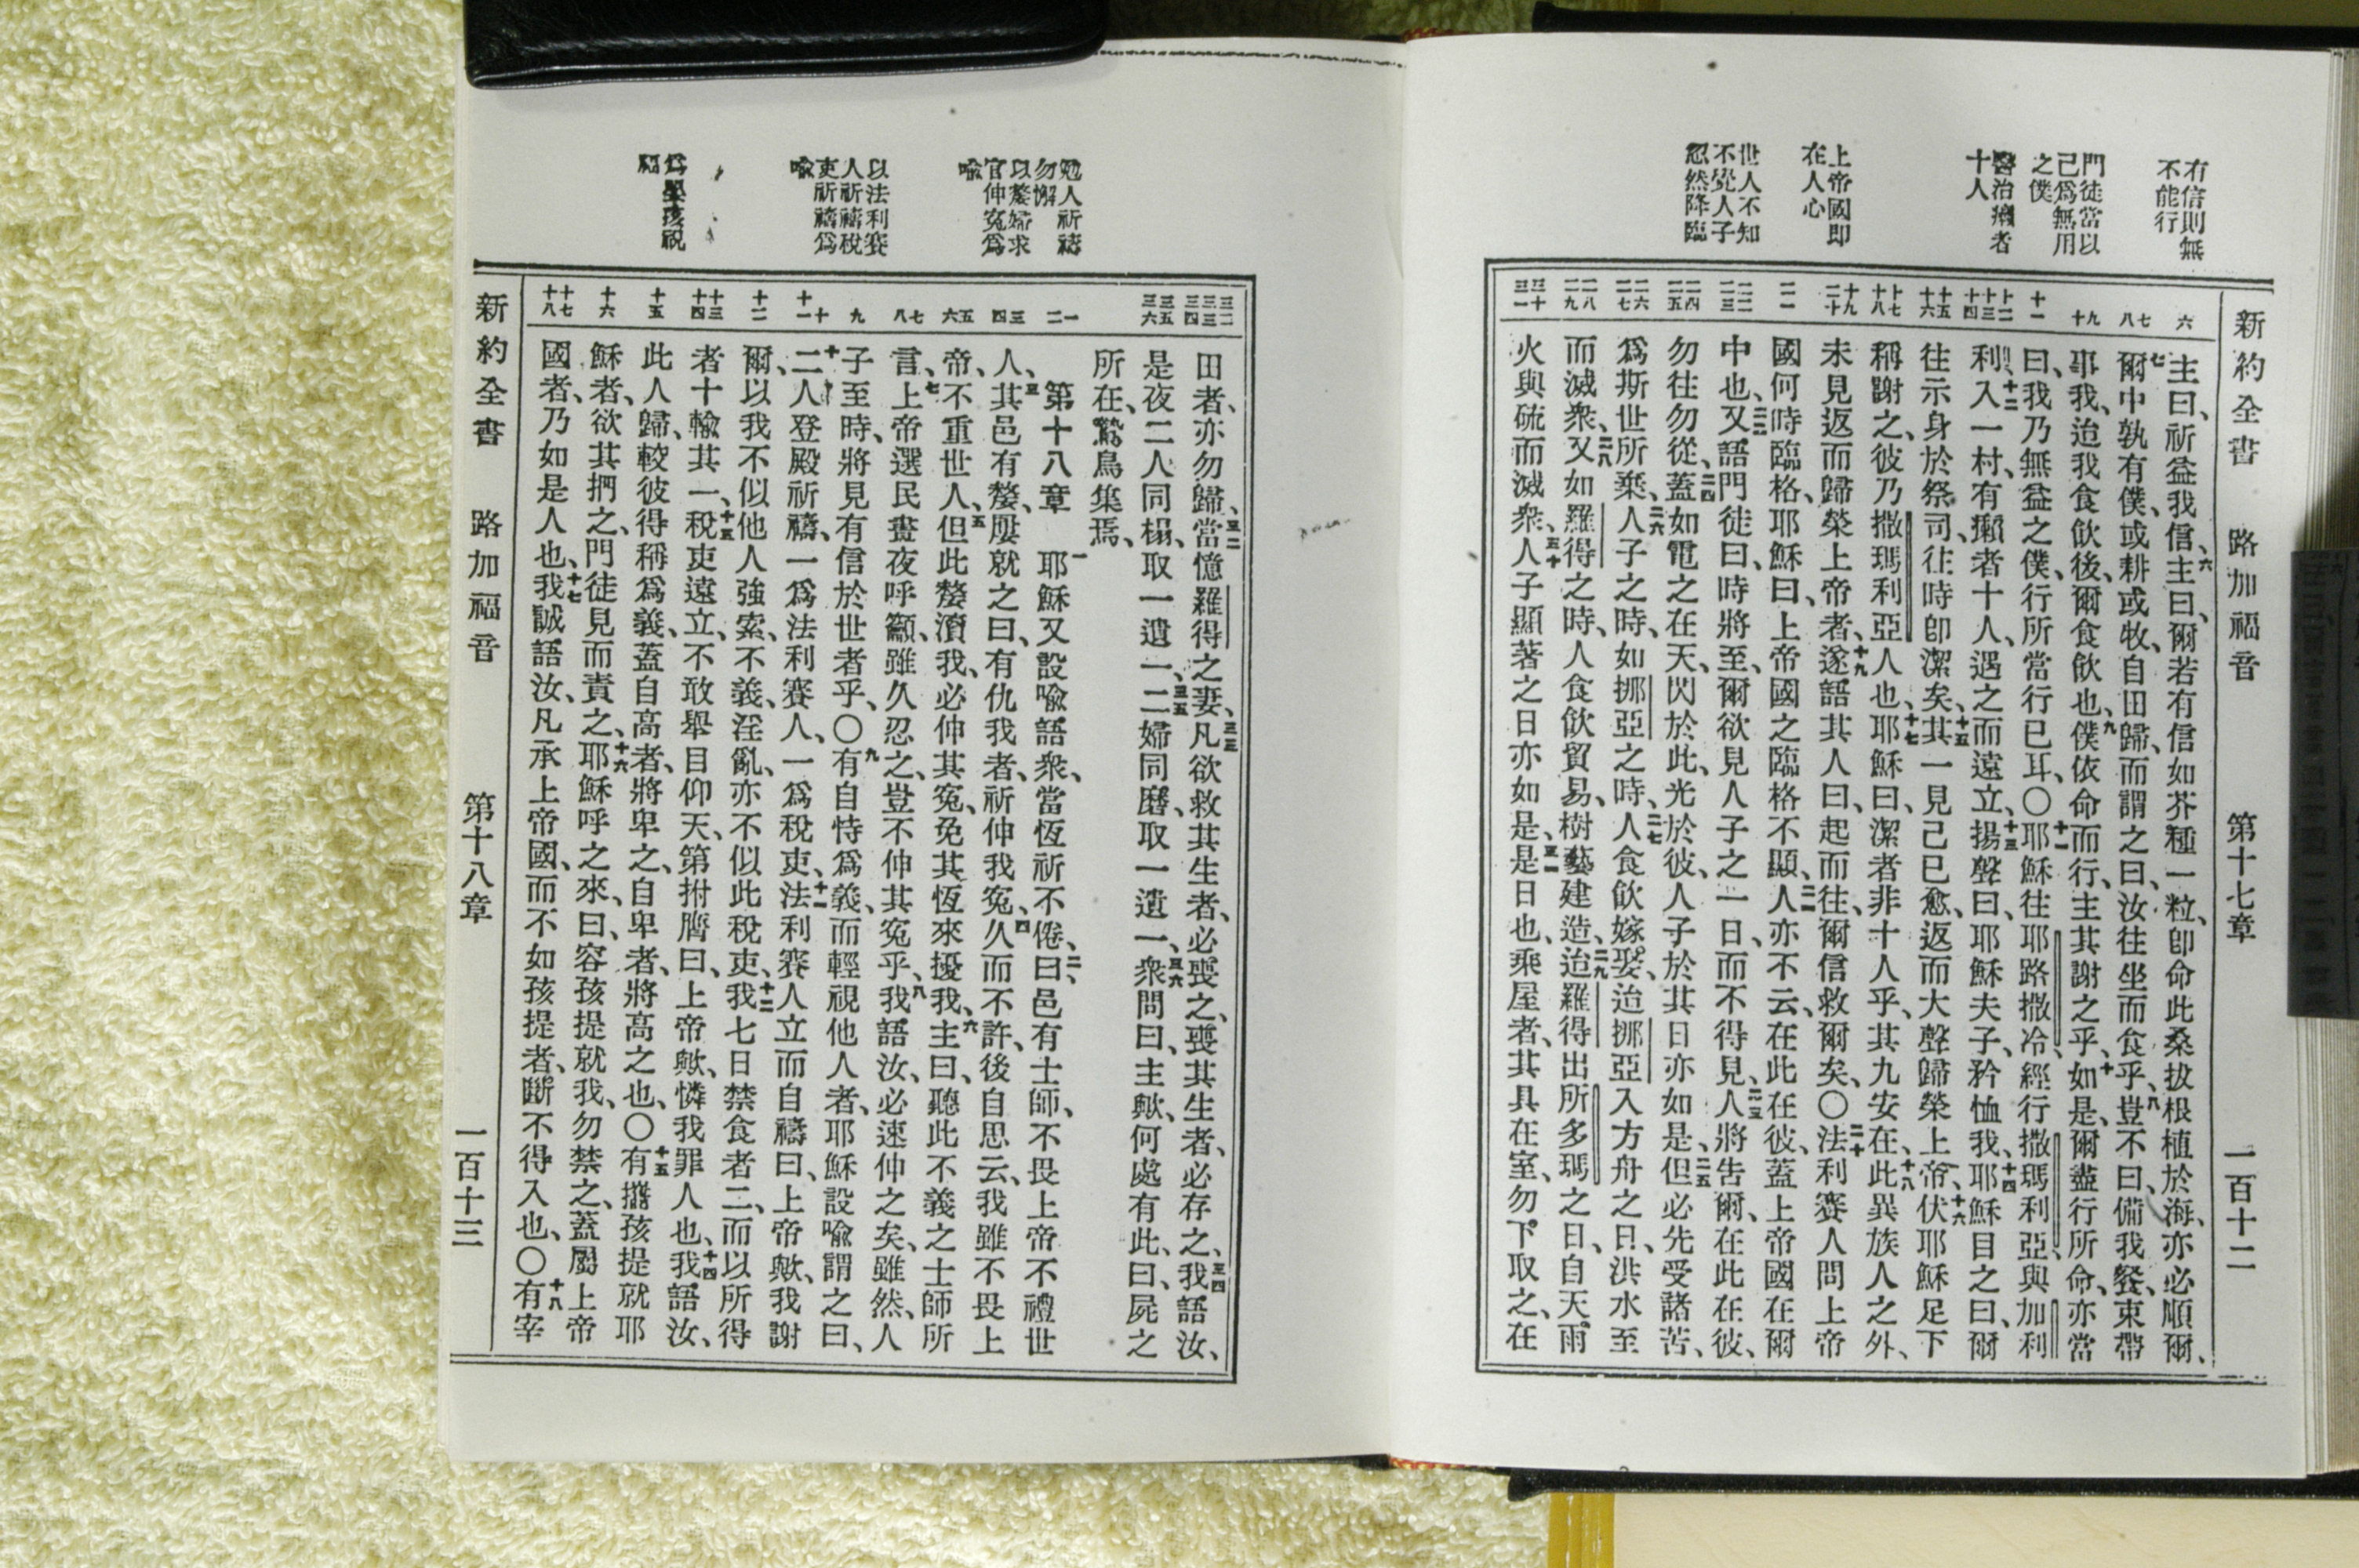 有信則無
不能行
門徒當以
己爲無用
之僕
醫治癩者
十人
上帝國即
在人心
世人不知
不覺人子
忽然降臨
新約全書 路加福音 第十七章 一百十二
六
七
八
九
十
十一
十二
十三
十四
十五
十六
十七
十八
十九
二十
二一
二二
二三
二四
二五
二六
二七
二八
二九
三十
三一
主曰、祈益我信、六主曰、爾若有信如芥種一粒、卽命此桑拔根植於海、亦必順爾、
七爾中孰有僕、或耕或牧、自田歸、而謂之曰、汝往坐而食乎、八豈不曰、備我餐、束帶
事我、迨我食飲後、爾食飲也、九僕依命而行、主其謝之乎、十如是、爾盡行所命、亦當
曰、我乃無益之僕、行所當行已耳、〇十一耶穌往耶路撒冷、經行撒瑪利亞與加利
利、十二入一村、有癩者十人、遇之而遠立、十三揚聲曰、耶穌夫子、矜恤我、十四耶穌目之曰、爾
往示身於祭司、往時卽潔矣、十五其一見己已愈、返而大聲歸榮上帝、十六伏耶穌足下
稱謝之、彼乃撒瑪利亞人也、十七耶穌曰、潔者非十人乎、其九安在、十八此異族人之外、
未見返而歸榮上帝者、十九遂語其人曰、起而往、爾信救爾矣、〇二十法利賽人問上帝
國何時臨格、耶穌曰、上帝國之臨格不顯、二一人亦不云、在此在彼、蓋上帝國在爾
中也、二二又語門徒曰、時將至、爾欲見人子之一日、而不得見、二三人將告爾、在此在彼、
勿往勿從、二四蓋如電之在天、閃於此、光於彼、人子於其日亦如是、二五但必先受諸苦、
爲斯世所棄、二六人子之時、如挪亞之時、二七人食飲嫁娶、迨挪亞入方舟之日、洪水至
而滅衆、二八又如羅得之時、人食飲貿易、樹藝建造、二九迨羅得出所多瑪之日、自天雨
火與硫而滅衆、三十人子顯著之日亦如是、三一是日也、乘屋者、其具在室、勿下取之、在
勉人祈禱
勿懈
以嫠婦求
官伸冤爲
喩
以法利賽
人祈禱稅
吏祈禱爲
喩
爲嬰孩祝
福
三二
三三
三四
三五
三六
一
二
三
四
五
六
七
八
九
十
十一
十二
十三
十四
十五
十六
十七
十八
田者、亦勿歸、三二當憶羅得之妻、三三凡欲救其生者、必喪之、喪其生者、必存之、三四我語汝、
是夜二人同榻、取一遺一、三五二婦同磨、取一遺一、三六衆問曰、主歟、何處有此、曰、屍之
所在、鷙鳥集焉、
第十八章 一耶穌又設喩語衆、當恆祈不倦、二曰、邑有士師、不畏上帝不禮世
人、三其邑有嫠、屢就之曰、有仇我者、祈伸我冤、四久而不許、後自思云、我雖不畏上
帝、不重世人、五但此嫠瀆我、必伸其冤、免其恆來擾我、六主曰、聽此不義之士師所
言、七上帝選民晝夜呼籲、雖久忍之、豈不伸其冤乎、八我語汝、必速伸之矣、雖然、人
子至時、將見有信於世者乎、〇九有自恃爲義、而輕視他人者、耶穌設喩謂之曰、
十二人登殿祈禱、一爲法利賽人、一爲稅吏、十一法利賽人立而自禱曰、上帝歟、我謝
爾、以我不似他人強索、不義、淫亂、亦不似此稅吏、十二我七日禁食者二、而以所得
者十輸其一、十三稅吏遠立、不敢舉目仰天、第拊膺曰、上帝歟、憐我罪人也、十四我語汝、
此人歸、較彼得稱爲義、蓋自高者、將卑之、自卑者、將高之也、〇十五有攜孩提就耶
穌者、欲其捫之、門徒見而責之、十六耶穌呼之來、曰、容孩提就我、勿禁之、蓋屬上帝
國者、乃如是人也、十七我誠語汝、凡承上帝國、而不如孩提者、斷不得入也、〇十八有宰
新約全書 路加福音 第十八章 一百十三